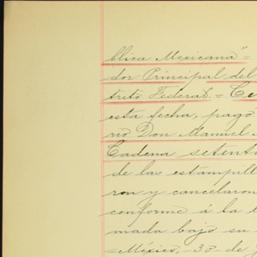 blica Mexicana"=
dor Principal del
trito Federal.= Ce
esta fecha, pagó
rio Don Manuel
Cadena setent
de las estampill
ron y cancelaron
conforme á la l
mada bajo su
México, 30 de